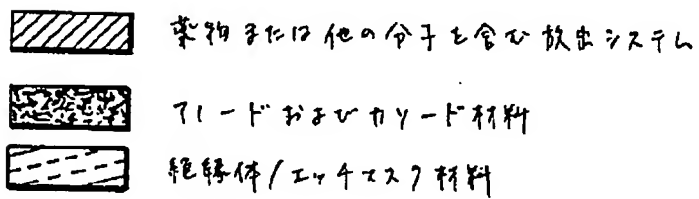 薬物または他の分子を含む放出システム
アノードおよびカソード材料
絶縁体/エッチマスク材料